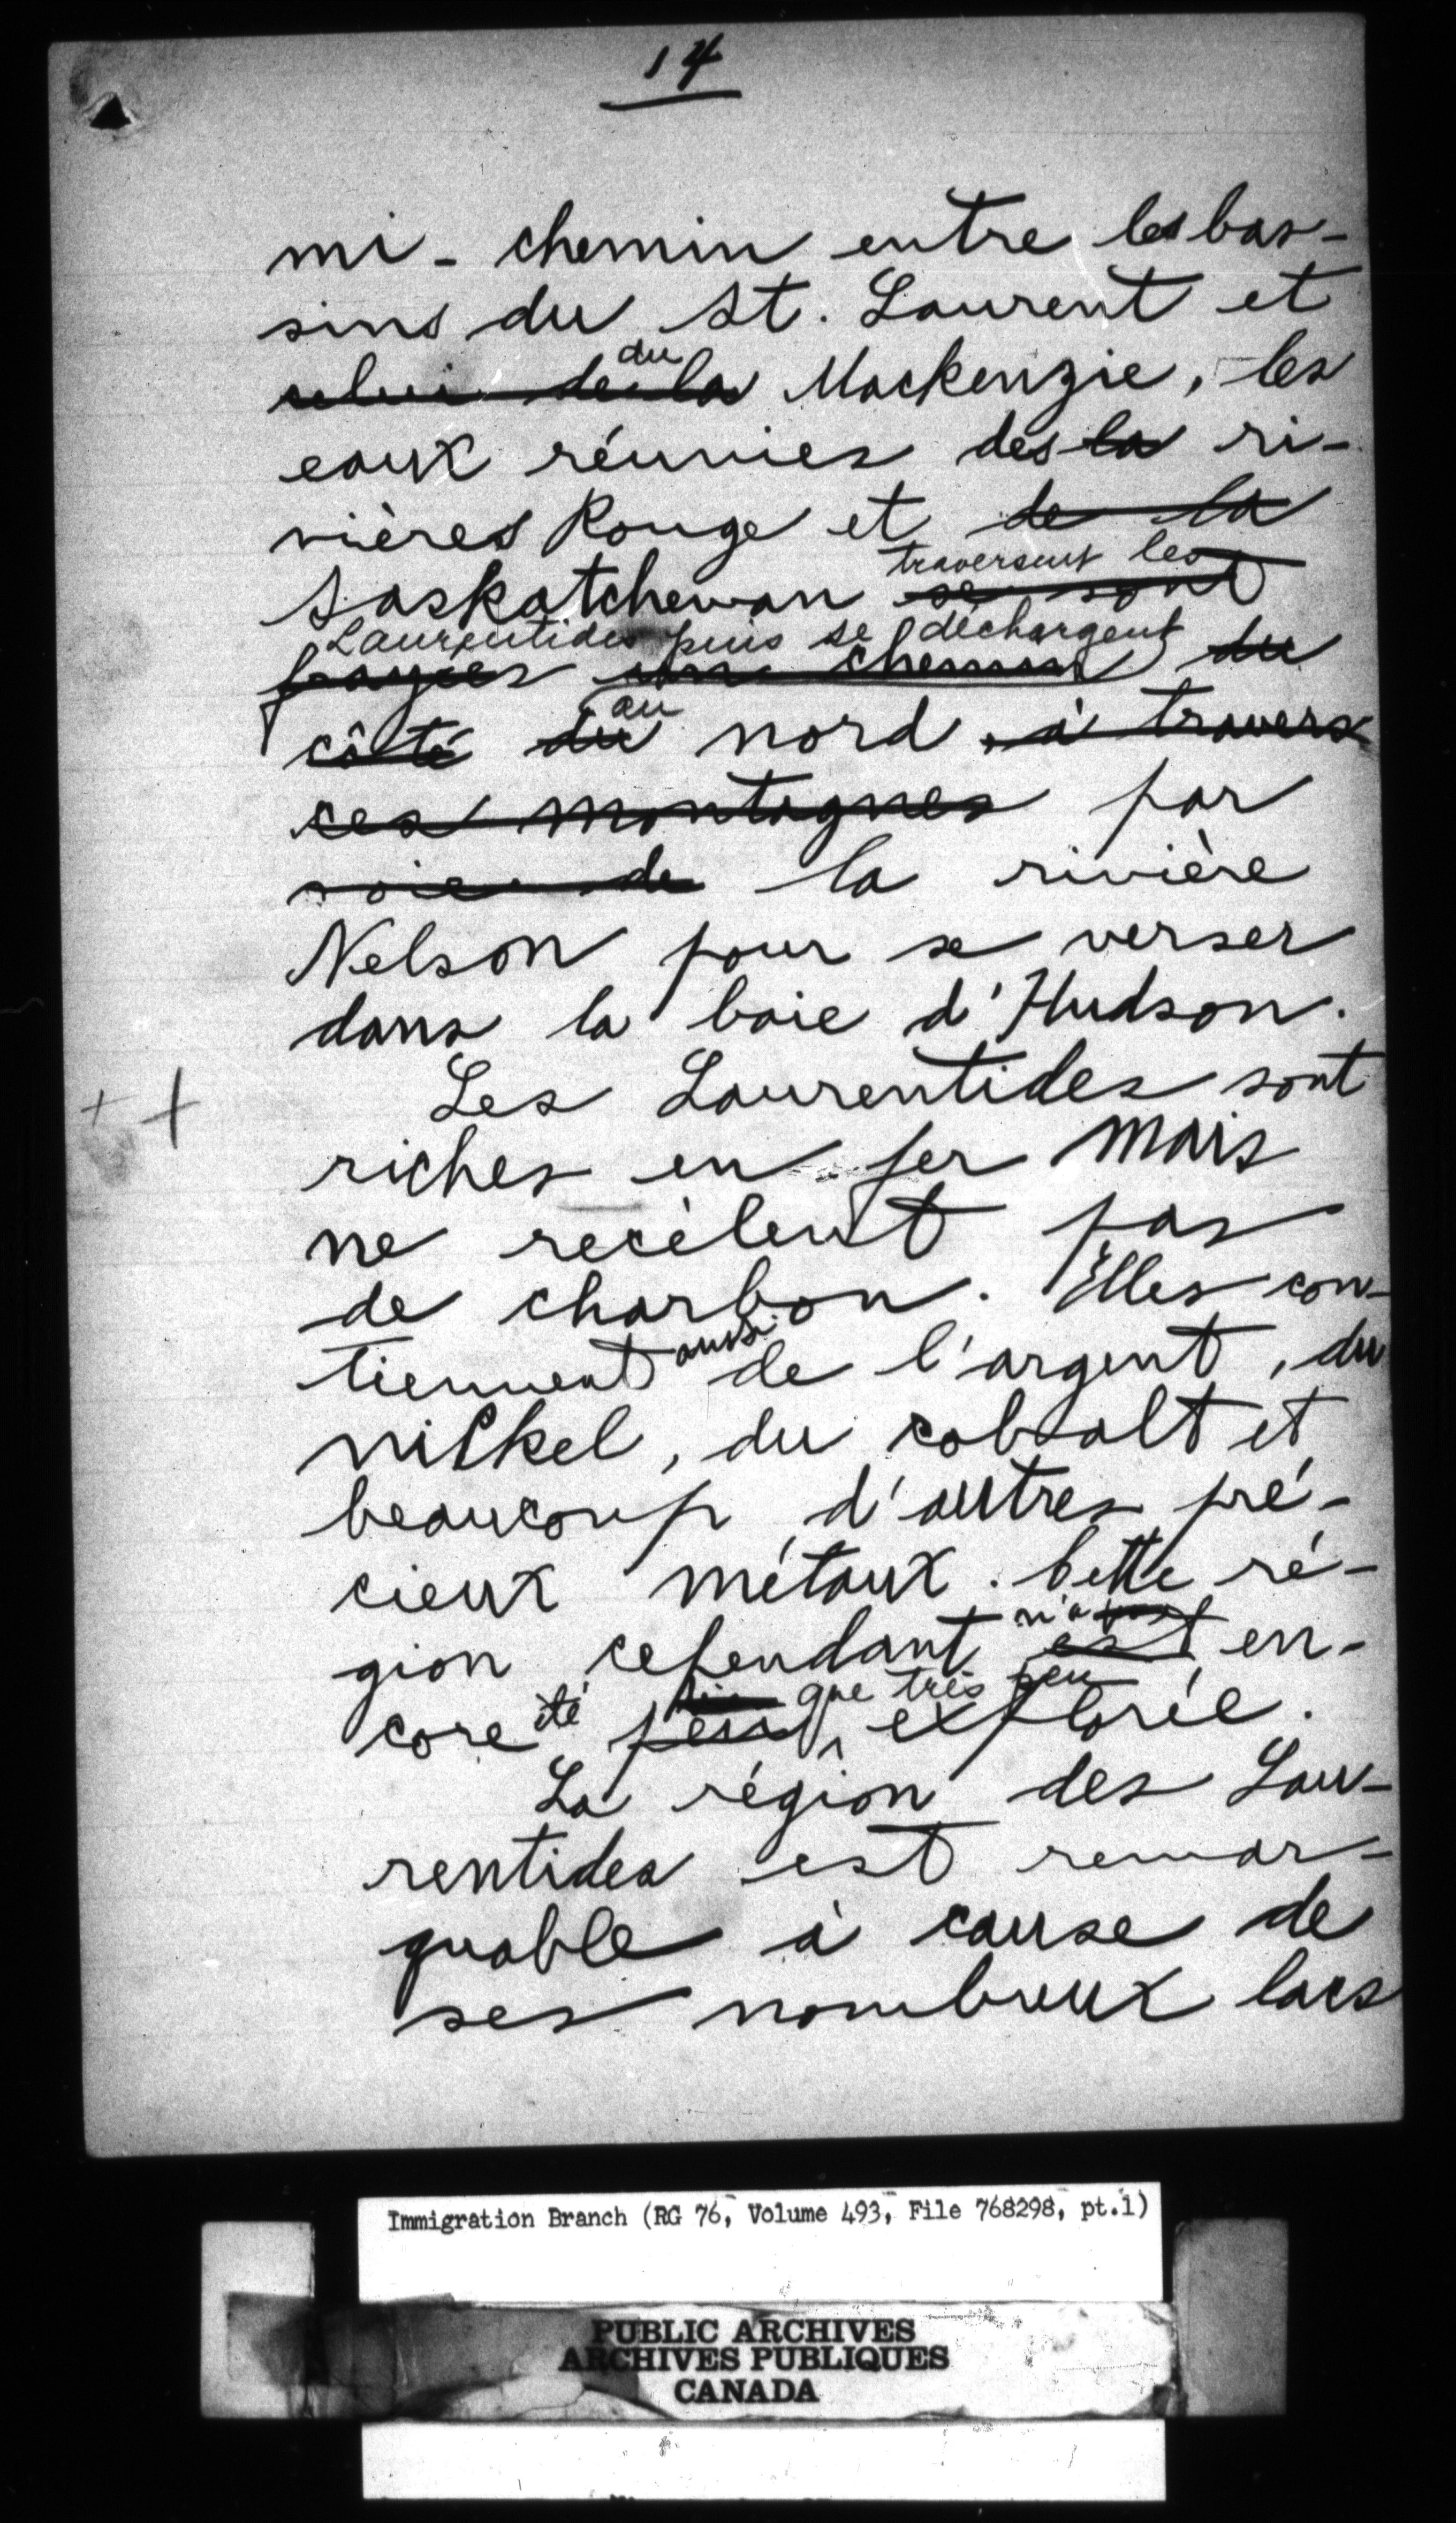 14
mi-chemin entre les bas-
sins du St. Laurent et
du
celui de la Mackenzie, les
eaux réunies des la ri-
vières Rouge et de la
traversent les
Saskatchewan se sont
Laurentides puis se déchargent
frayées un chemin du
au
côté du nord, à travers
ces montagnes par
voie de la rivière
Nelson pour se verser
dans la baie d'Hudson.
+ + Les Laurentides sont
riches en fer mais
ne recèlent pas
de charbon. Elles con-
aussi
tiennent de l'argent, du
nickel, du cobalt et
beaucoup d'autres pré-
cieux métaux. Cette ré-
n'a pas
gion cependant est en-
été que très peu
core peu explorée.
La région des Lau-
rentides est remar-
quable à cause de
ses nombreux lacs
Immigration Branch (RG 76, Volume 493, File 768298, pt.1)
PUBLIC ARCHIVES
ARCHIVES PUBLIQUES
CANADA